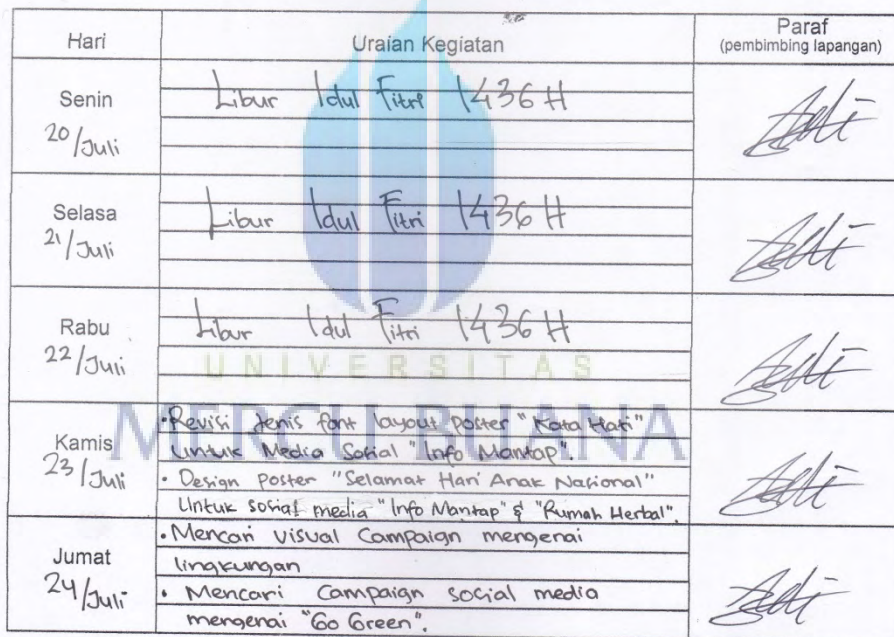 Hari Uraian Kegiatan Paraf
(pembimbing lapangan)
Senin
20/Juli
Libur Idul Fitri 1436 H
Selasa
21/Juli
Libur Idul Fitri 1436 H
Rabu
22/Juli
Libur Idul Fitri 1436 H
UNIVERSITAS
MERCU BUANA
Kamis
23/Juli
• Revisi Jenis font layout poster "Kata Hati"
Untuk Media Sosial "Info Mantap".
• Design poster "Selamat Hari Anak Nasional"
Untuk sosial media "Info Mantap" & "Rumah Herbal".
Jumat
24/Juli
• Mencari visual Campaign mengenai
lingkungan
• Mencari Campaign social media
mengenai "Go Green".